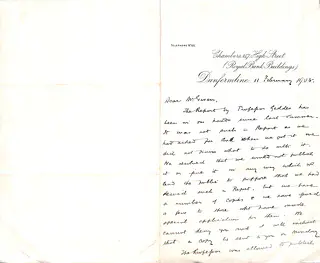 Chambers, 27, High Street
(Royal Bank Buildings)
Dunfermline, 11 February 1905.
Dear McGowan,
The Report by Professor Geddes has
been in our hands since last Summer.
It was not such a Report as we
had asked for and when we got it we
did not know what to do with it.
We decided that we would not publish
it or give it in any way which would
lead the public to suppose that we had
Report, but we have
a number of copies & we have given
a few to those who have made
special application for them. We
cannot deny you and I will instruct
that a copy be sent to you on Monday
The Professor was allowed to publish